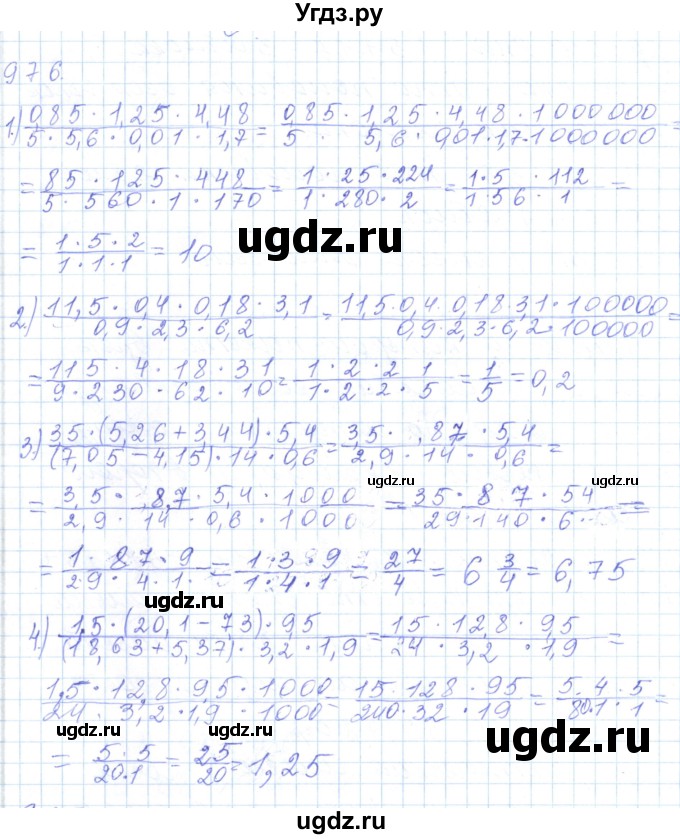 Угдз.ру
976.
1.) 0,85 · 1,25 · 4,48 / 5 · 5,6 · 0,01 · 1,7 = 0,85 · 1,25 · 4,48 · 1000000 / 5 · 5,6 · 0,01 · 1,7 · 1000000 =
= 85 · 125 · 448 / 5 · 560 · 1 · 170 = 1 · 25 · 224 / 1 · 280 · 2 = 1 · 5 · 112 / 1 · 56 · 1 =
= 1 · 5 · 2 / 1 · 1 · 1 = 10
ugdz.ru
ugdz.ru
2.) 11,5 · 0,4 · 0,18 · 3,1 / 0,9 · 2,3 · 6,2 = 11,5 · 0,4 · 0,18 · 3,1 · 100000 / 0,9 · 2,3 · 6,2 · 100000 =
= 115 · 4 · 18 · 31 / 9 · 230 · 62 · 10 = 1 · 2 · 2 1 / 1 · 2 · 2 · 5 = 1/5 = 0,2
3.) 3,5 · (5,26 + 3,44) · 5,4 / (7,05 − 4,15) · 14 · 0,6 = 3,5 · 8,7 · 5,4 / 2,9 · 14 · 0,6 =
ugdz.ru
= 3,5 · 8,7 · 5,4 · 1000 / 2,9 · 14 · 0,6 · 1000 = 35 · 87 · 54 / 29 · 140 · 6 =
= 1 · 87 · 9 / 29 · 4 · 1 = 1 · 3 · 9 / 1 · 4 · 1 = 27/4 = 6 3/4 = 6,75
ugdz.ru
4.) 1,5 · (20,1 − 7,3) · 9,5 / (18,63 + 5,37) · 3,2 · 1,9 = 1,5 · 12,8 · 9,5 / 24 · 3,2 · 1,9 =
1,5 · 12,8 · 9,5 · 1000 / 24 · 3,2 · 1,9 · 1000 = 15 · 128 · 95 / 240 · 32 · 19 = 5 · 4 · 5 / 80 · 1 · 1 =
ugdz.ru
ugdz.ru
= 5 · 5 / 20 · 1 = 25/20 = 1,25
ugdz.ru